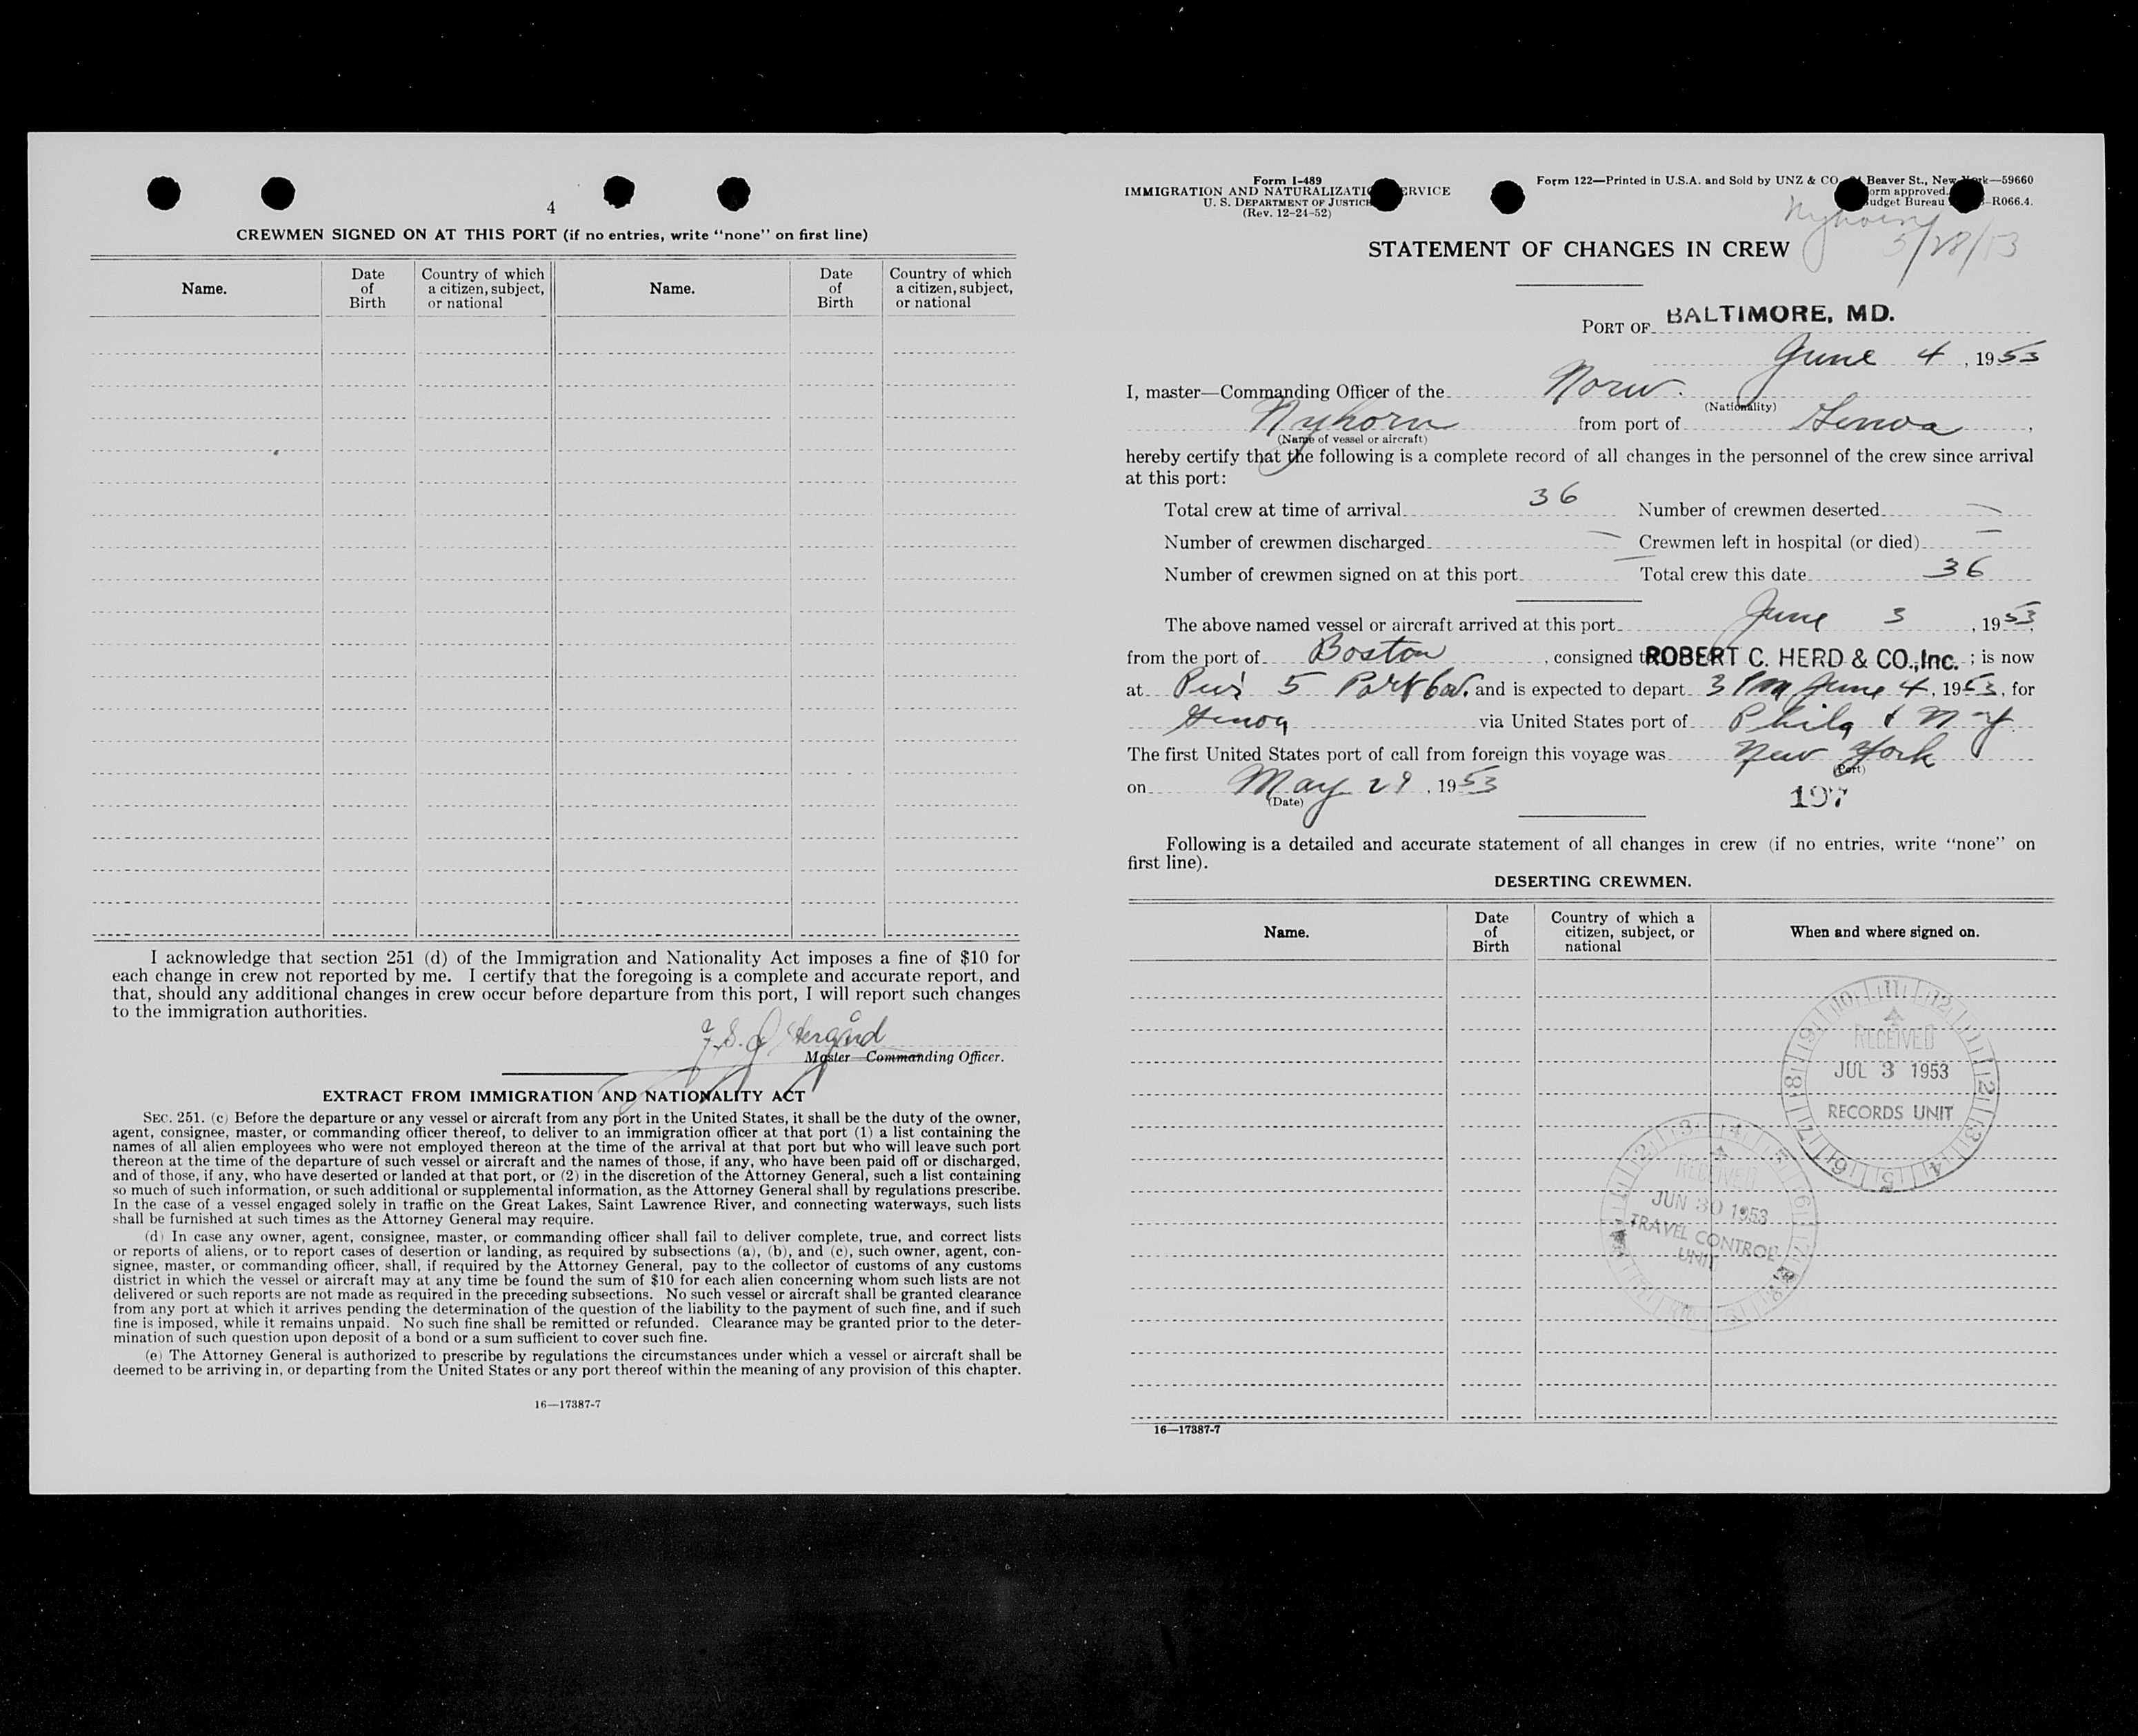 4
CREWMEN SIGNED ON AT THIS PORT (if no entries, write "none" on first line)
Name.
Date of Birth
Country of which a citizen, subject, or national
Name.
Date of Birth
Country of which a citizen, subject, or national
I acknowledge that section 251 (d) of the Immigration and Nationality Act imposes a fine of $10 for
each change in crew not reported by me. I certify that the foregoing is a complete and accurate report, and
that, should any additional changes in crew occur before departure from this port, I will report such changes
to the immigration authorities.
Master—Commanding Officer.
EXTRACT FROM IMMIGRATION AND NATIONALITY ACT
SEC. 251. (c) Before the departure or any vessel or aircraft from any port in the United States, it shall be the duty of the owner,
agent, consignee, master, or commanding officer thereof, to deliver to an immigration officer at that port (1) a list containing the
names of all alien employees who were not employed thereon at the time of the arrival at that port but who will leave such port
thereon at the time of the departure of such vessel or aircraft and the names of those, if any, who have been paid off or discharged,
and of those, if any, who have deserted or landed at that port, or (2) in the discretion of the Attorney General, such a list containing
so much of such information, or such additional or supplemental information, as the Attorney General shall by regulations prescribe.
In the case of a vessel engaged solely in traffic on the Great Lakes, Saint Lawrence River, and connecting waterways, such lists
shall be furnished at such times as the Attorney General may require.
(d) In case any owner, agent, consignee, master, or commanding officer shall fail to deliver complete, true, and correct lists
or reports of aliens, or to report cases of desertion or landing, as required by subsections (a), (b), and (c), such owner, agent, con-
signee, master, or commanding officer, shall, if required by the Attorney General, pay to the collector of customs of any customs
district in which the vessel or aircraft may at any time be found the sum of $10 for each alien concerning whom such lists are not
delivered or such reports are not made as required in the preceding subsections. No such vessel or aircraft shall be granted clearance
from any port at which it arrives pending the determination of the question of the liability to the payment of such fine, and if such
fine is imposed, while it remains unpaid. No such fine shall be remitted or refunded. Clearance may be granted prior to the deter-
mination of such question upon deposit of a bond or a sum sufficient to cover such fine.
(e) The Attorney General is authorized to prescribe by regulations the circumstances under which a vessel or aircraft shall be
deemed to be arriving in, or departing from the United States or any port thereof within the meaning of any provision of this chapter.
16—17387-7
Form I-489
IMMIGRATION AND NATURALIZATION SERVICE
U. S. DEPARTMENT OF JUSTICE
(Rev. 12-24-52)
Form 122—Printed in U.S.A. and Sold by UNZ & CO. Beaver St., New York—59660
orm approved.
udget Bureau -R066.4.
5/28/53
STATEMENT OF CHANGES IN CREW
PORT OF BALTIMORE, MD.
June 4, 1953
I, master—Commanding Officer of the Norw.
(Nationality)
Nyhorn from port of Genoa,
(Name of vessel or aircraft)
hereby certify that the following is a complete record of all changes in the personnel of the crew since arrival
at this port:
Total crew at time of arrival 36 Number of crewmen deserted —
Number of crewmen discharged — Crewmen left in hospital (or died) —
Number of crewmen signed on at this port — Total crew this date 36
The above named vessel or aircraft arrived at this port June 3, 1953
from the port of Boston, consigned to ROBERT C. HERD & CO., Inc.; is now
at 5 and is expected to depart 3 PM June 4, 1953, for
Genoa via United States port of Phila & N Y.
The first United States port of call from foreign this voyage was New York
(Port)
on May 29, 1953
(Date)
197
Following is a detailed and accurate statement of all changes in crew (if no entries, write "none" on
first line).
DESERTING CREWMEN.
Name.
Date of Birth
Country of which a citizen, subject, or national
When and where signed on.
RECEIVED
JUL 3 1953
RECORDS UNIT
RECEIVED
JUN 30 1953
TRAVEL CONTROL
UNIT
16—17387-7